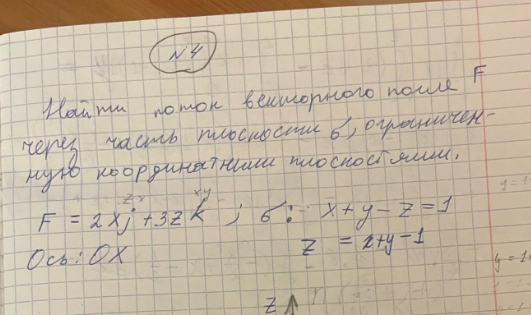 №4
Найти поток векторного поля F
через часть плоскости σ, ограничен-
ную координатными плоскостями.
zx xy
F = 2xj + 3zk ; σ: x+y-z=1
Ось: OX z = x+y-1
y=1
z